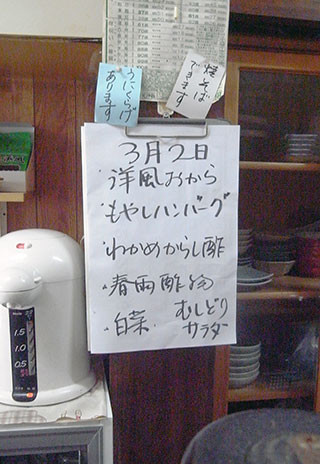 うにくらげ
あります
焼そば
できます
3月2日
・洋風おから
・もやしハンバーグ
・わかめからし酢
・春雨酢物
・白菜 むしどり
サラダ
1.5
1.0
0.5